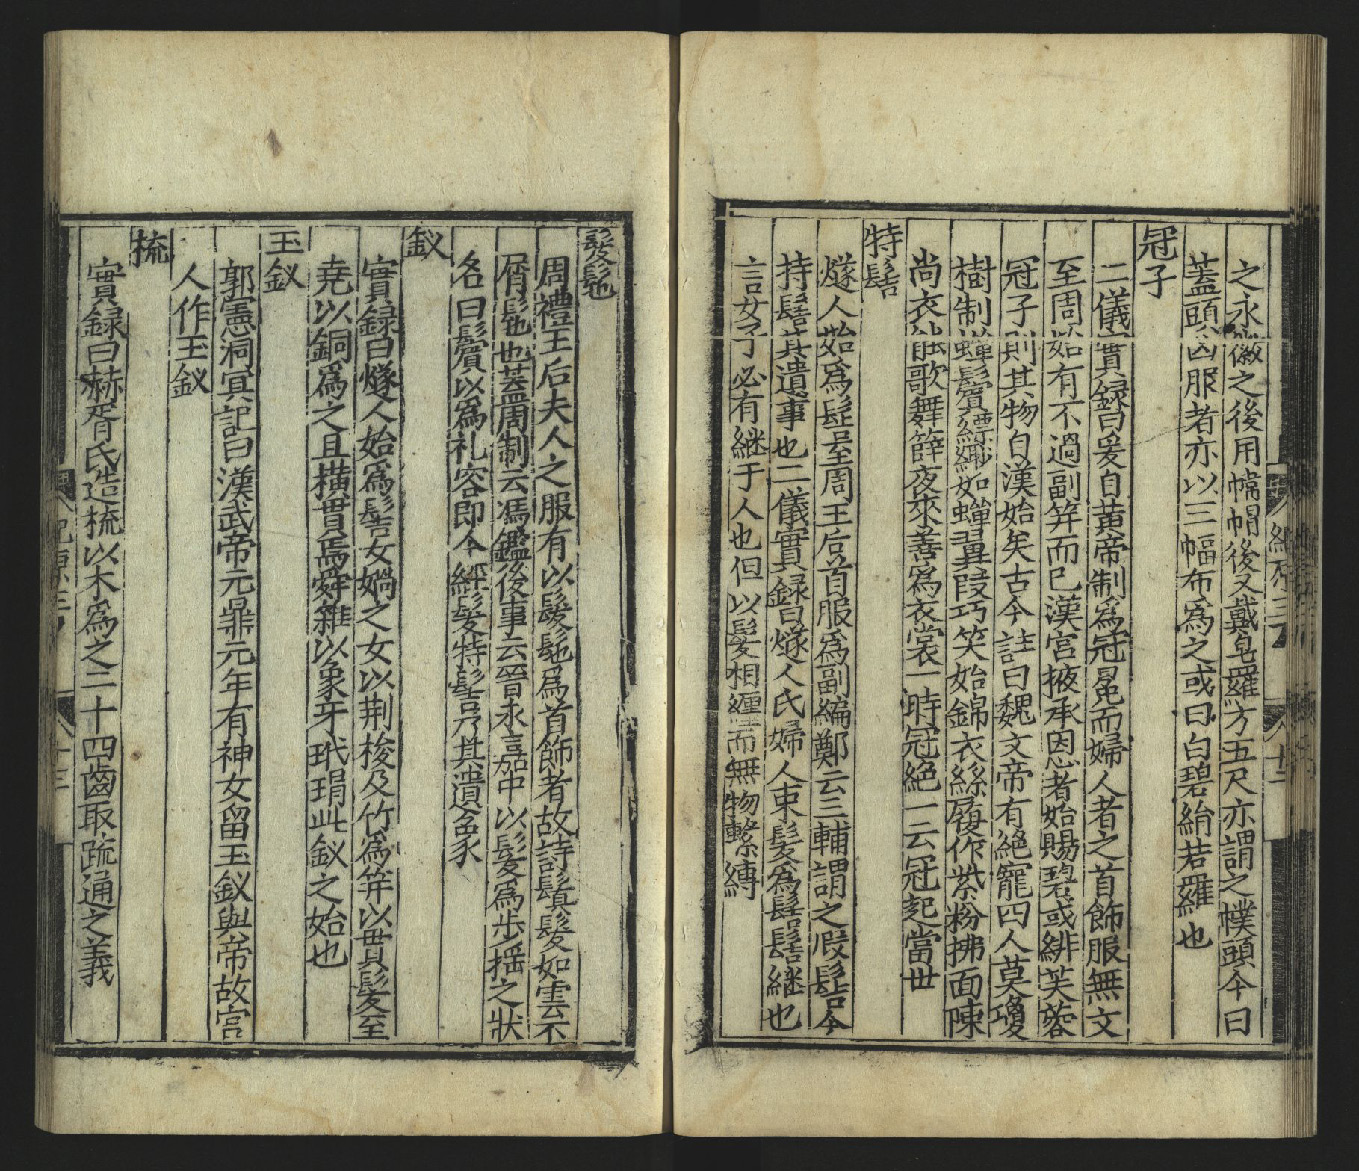 之永徽之後用幃帽後又戴皂羅方五尺亦謂之幞頭今曰
蓋頭凶服者亦以三幅布爲之或曰白碧絹若羅也
冠子
二儀實録曰爰自黄帝制爲冠冕而婦人者之首飾服無文
至周始有不過副笄而已漢宫掖承恩者始賜碧或緋芙蓉
冠子則其物自漢始矣古今註曰魏文帝有絶寵四人莫瓊
樹制蟬鬢縹緲如蟬翼段巧笑始錦衣絲履作紫粉拂面陳
尚衣能歌舞薛夜來善爲衣裳一時冠絶一云冠起當世
特髻
燧人始爲髻至周王后首服爲副編鄭云三輔謂之假髻今
持髻其遺事也二儀實録曰燧人氏婦人束髮爲髻髻継也
言女子必有継于人也但以髮相纏而無物繫縛
髲髢
周禮王后夫人之服有以髲髢爲首飾者故詩鬒髮如雲不
屑髢也蓋周制云馮鑑後事云晉永嘉中以髮爲步揺之狀
名曰鬢以爲礼容即今經髮特髻乃其遺象
釵
實録曰燧人始爲髻女媧之女以荆梭及竹爲笄以貫髮至
堯以銅爲之且横貫焉舜雜以象牙玳瑁此釵之始也
玉釵
郭憲洞冥記曰漢武帝元鼎元年有神女留玉釵與帝故宫
人作玉釵
梳
實録曰赫胥氏造梳以木爲之二十四齒取疏通之義